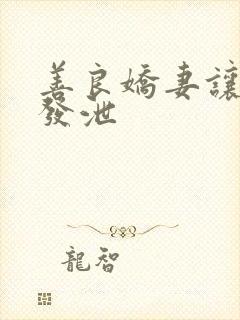 善良嬌妻讓
發泄
龍智